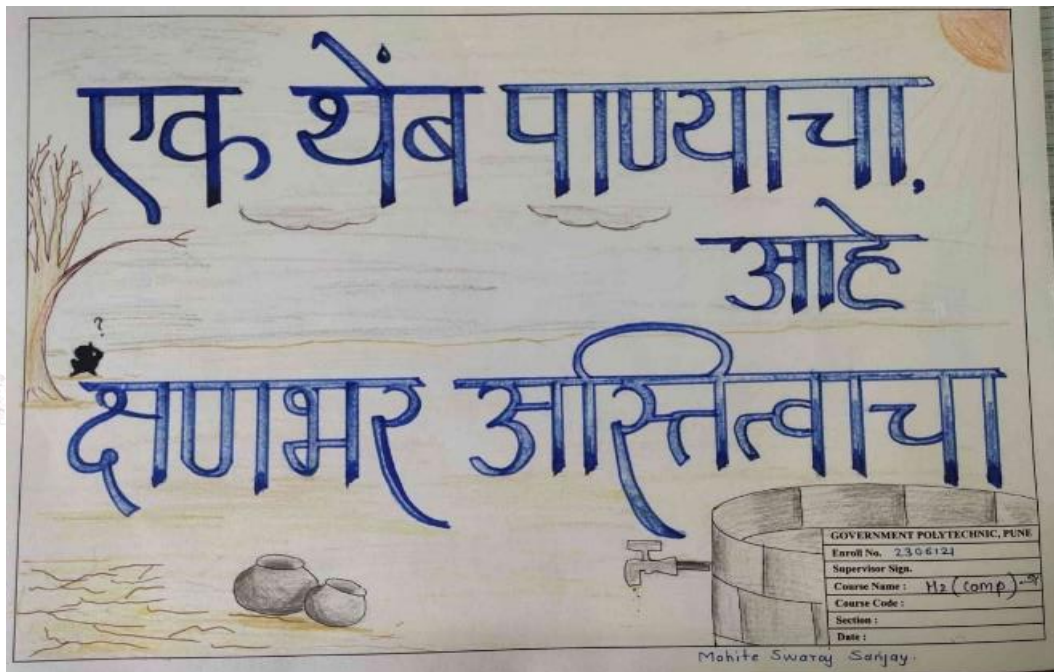 एक थेंब पाण्याचा,
आहे
?
क्षणभर अस्तित्वाचा
GOVERNMENT POLYTECHNIC, PUNE
Enroll No. 2306121
Supervisor Sign.
Course Name : H2 (comp)
Course Code :
Section :
Date :
Mohite Swaraj Sanjay.